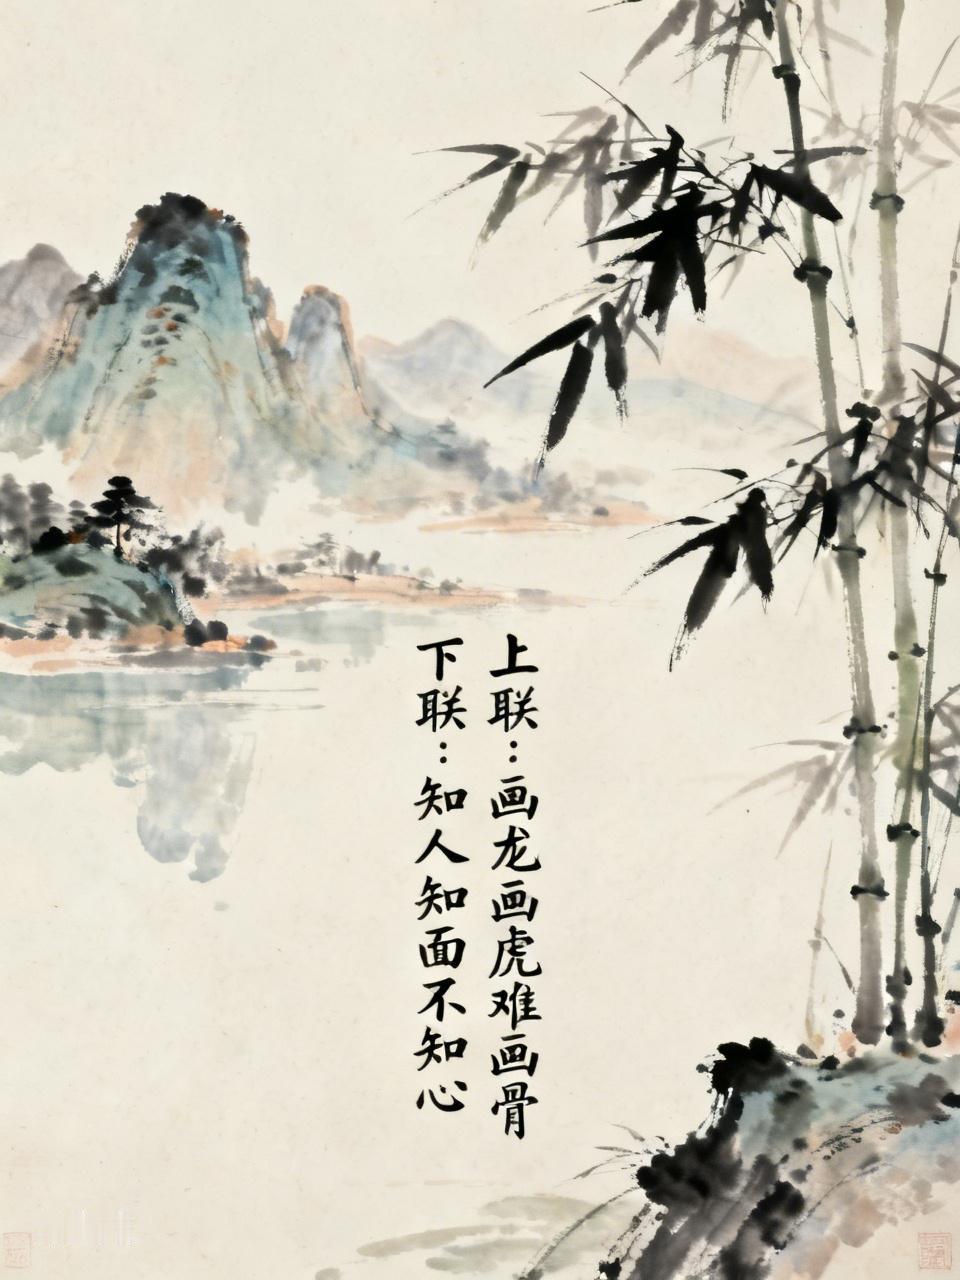 上联：画龙画虎难画骨
下联：知人知面不知心